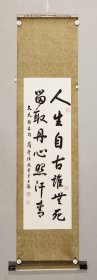 人生自古誰無死
留取丹心照汗青
文天祥